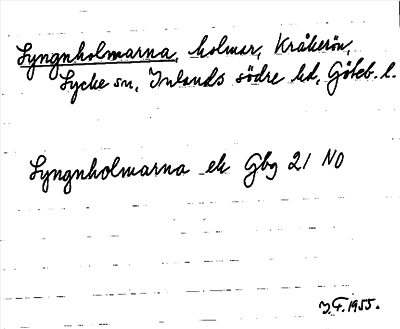 Lyngnholmarna, holmar, Kråkerön,
Lycke sn, Inlands södre hd, Göteb. l.
Lyngnholmarna ek Gbg 21 NO
J.F. 1955.